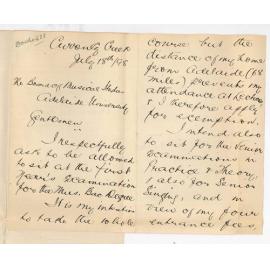 Creek
July 18th/98
The Board of Musical Studies
Adelaide University
Gentlemen
I respectfully
ask to be allowed
to sit at the first
Year's Examination
for the Mus. Bac Degree
It is my intention
to take the whole
course but the
distance of my home
from Adelaide (68
miles) prevents my
attendance at Lectures
& I therefore apply
for exemption.
I intend also
to sit for the Senior
Examinations in
Practice & Theory
& also for Senior
Singing, and in
view of my four
entrance fees,